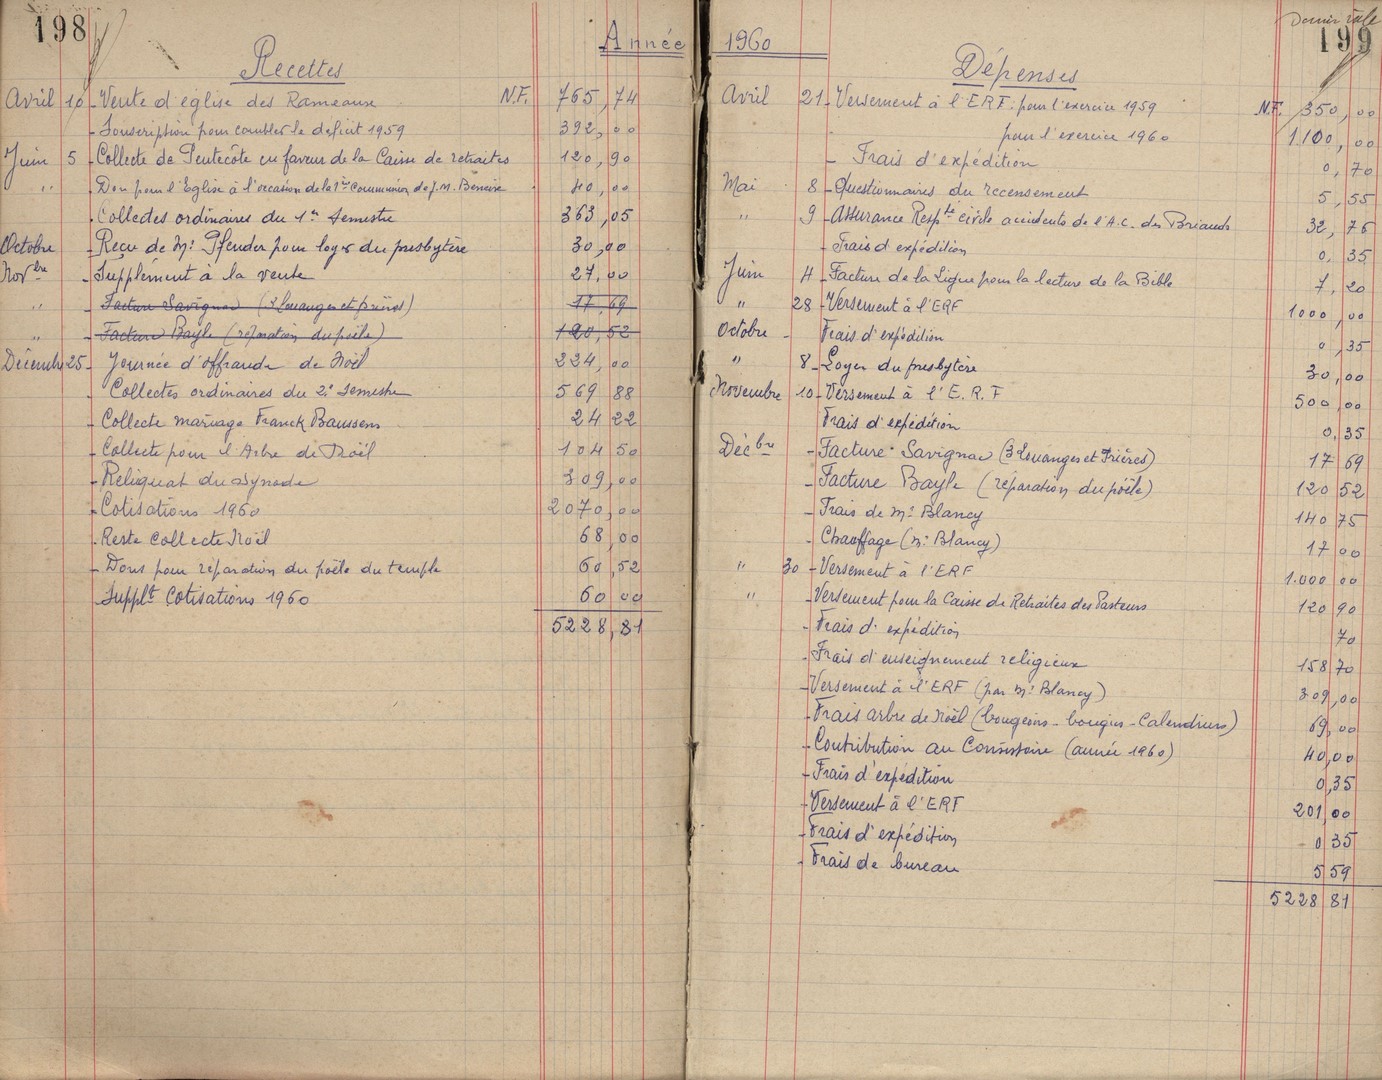 198
Année
Recettes
Avril 10 - Vente d'église des Rameaux N.F. 765,74
- Souscription pour combler le déficit 1959 392,00
Juin 5 - Collecte de Pentecôte en faveur de la Caisse de retraites 120,90
" - Don pour l'Eglise à l'occasion de la 1ère Communion de J.M. 40,00
- Collectes ordinaires du 1er Semestre 363,05
Octobre - Reçu de Mr Pfender pour loyer du presbytère 30,00
Novbre - Supplément à la vente 27,00
" - Facture Savignac (3 Louanges et prières) 17,69
" - Facture Bayle (réparation du poêle) 120,52
Décembre 25 - Journée d'offrande de Noël 224,00
- Collectes ordinaires du 2e Semestre 569 88
- Collecte mariage Franck Baussens 24 22
- Collecte pour l'Arbre de Noël 104 50
- Reliquat du Synode 309,00
- Cotisations 1960 2070,00
- Reste collecte Noël 68,00
- Dons pour réparation du poêle du temple 60,52
- Supplt Cotisations 1960 60 00
5228,81
Dernier
199
1960
Dépenses
Avril 21 - Versement à l'ERF pour l'exercice 1959 N.F. 350,00
pour l'exercice 1960 1.100,00
- Frais d'expédition 0,70
Mai 8 - Questionnaires du recensement 5,55
" 9 - Assurance Respté civile accidents de l'A.C. des Briands 32,76
- Frais d'expédition 0,35
Juin 4 - Facture de la Ligue pour la lecture de la Bible 7,20
" 28 - Versement à l'ERF 1000,00
Octobre - Frais d'expédition 0,35
" 8 - Loyer du presbytère 30,00
Novembre 10 - Versement à l'E.R.F 500,00
Frais d'expédition 0,35
Décbre - Facture Savignac (3 Louanges et Prières) 17 69
- Facture Bayle (réparation du poêle) 120 52
- Frais de Mr Blancy 140 75
- Chauffage (Mr Blancy) 17 00
" 30 - Versement à l'ERF 1.000 00
" - Versement pour la Caisse de Retraites des Pasteurs 120 90
- Frais d'expédition 70
- Frais d'enseignement religieux 158 70
- Versement à l'ERF (par Mr Blancy) 309,00
- Frais arbre de Noël (bougeoirs - bougies - Calendriers) 69,00
- Contribution au Consistoire (année 1960) 40,00
- Frais d'expédition 0,35
- Versement à l'ERF 201,00
- Frais d'expédition 0 35
- Frais de bureau 5 59
5228 81